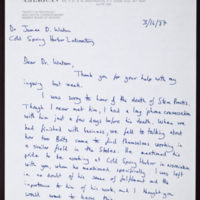 3/16/87
Dr James D. Watson
Cold Spring Harbor Laboratory
Dear Dr. Watson,
Thank you for your help with my
inquiry last week.
I was sorry to hear of the death of
Though I never met him, I had a long phone conversation
with him just a few days before his death. When we
had finished with business, we fell to talking about
how two came to find themselves working in
a similar field in the States. He mentioned his
pride to be working at Cold Spring Harbor in association
with you, whom he mentioned specifically. I was left
in no doubt of his sense of fulfilment and the
importance to him of his work, and I thought you
would want to know this.